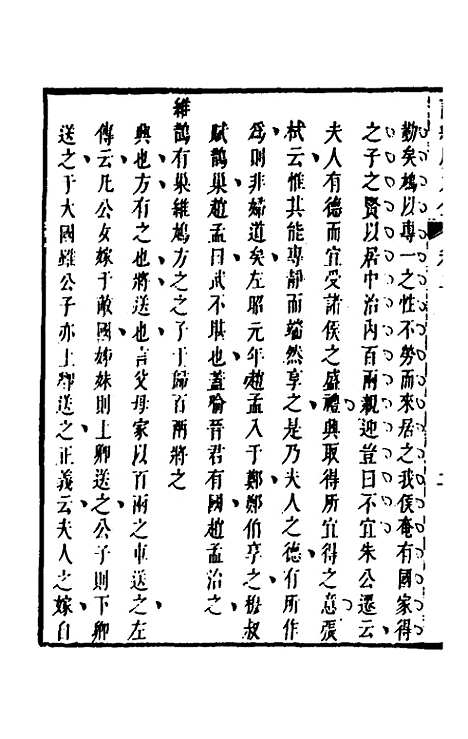 勤矣鳩以專一之性不勞而來居之我侯奄有國家得
之子之賢以居中治內百兩親迎豈曰不宜朱公遷云
夫人有德而宜受諸侯之盛禮興取得所宜得之意張
栻云惟其能專靜而端然享之是乃夫人之德有所作
爲則非婦道矣左昭元年趙孟入于鄭鄭伯享之穆叔
賦鵲巢趙孟曰武不堪也蓋喻晉君有國趙孟治之
維鵲有巢維鳩方之之子于歸百兩將之
興也方有之也將送也言父母家以百兩之車送之左
傳云凡公女嫁于敵國姊妹則上卿送之公子則下卿
送之于大國雖公子亦上卿送之正義云夫人之嫁自